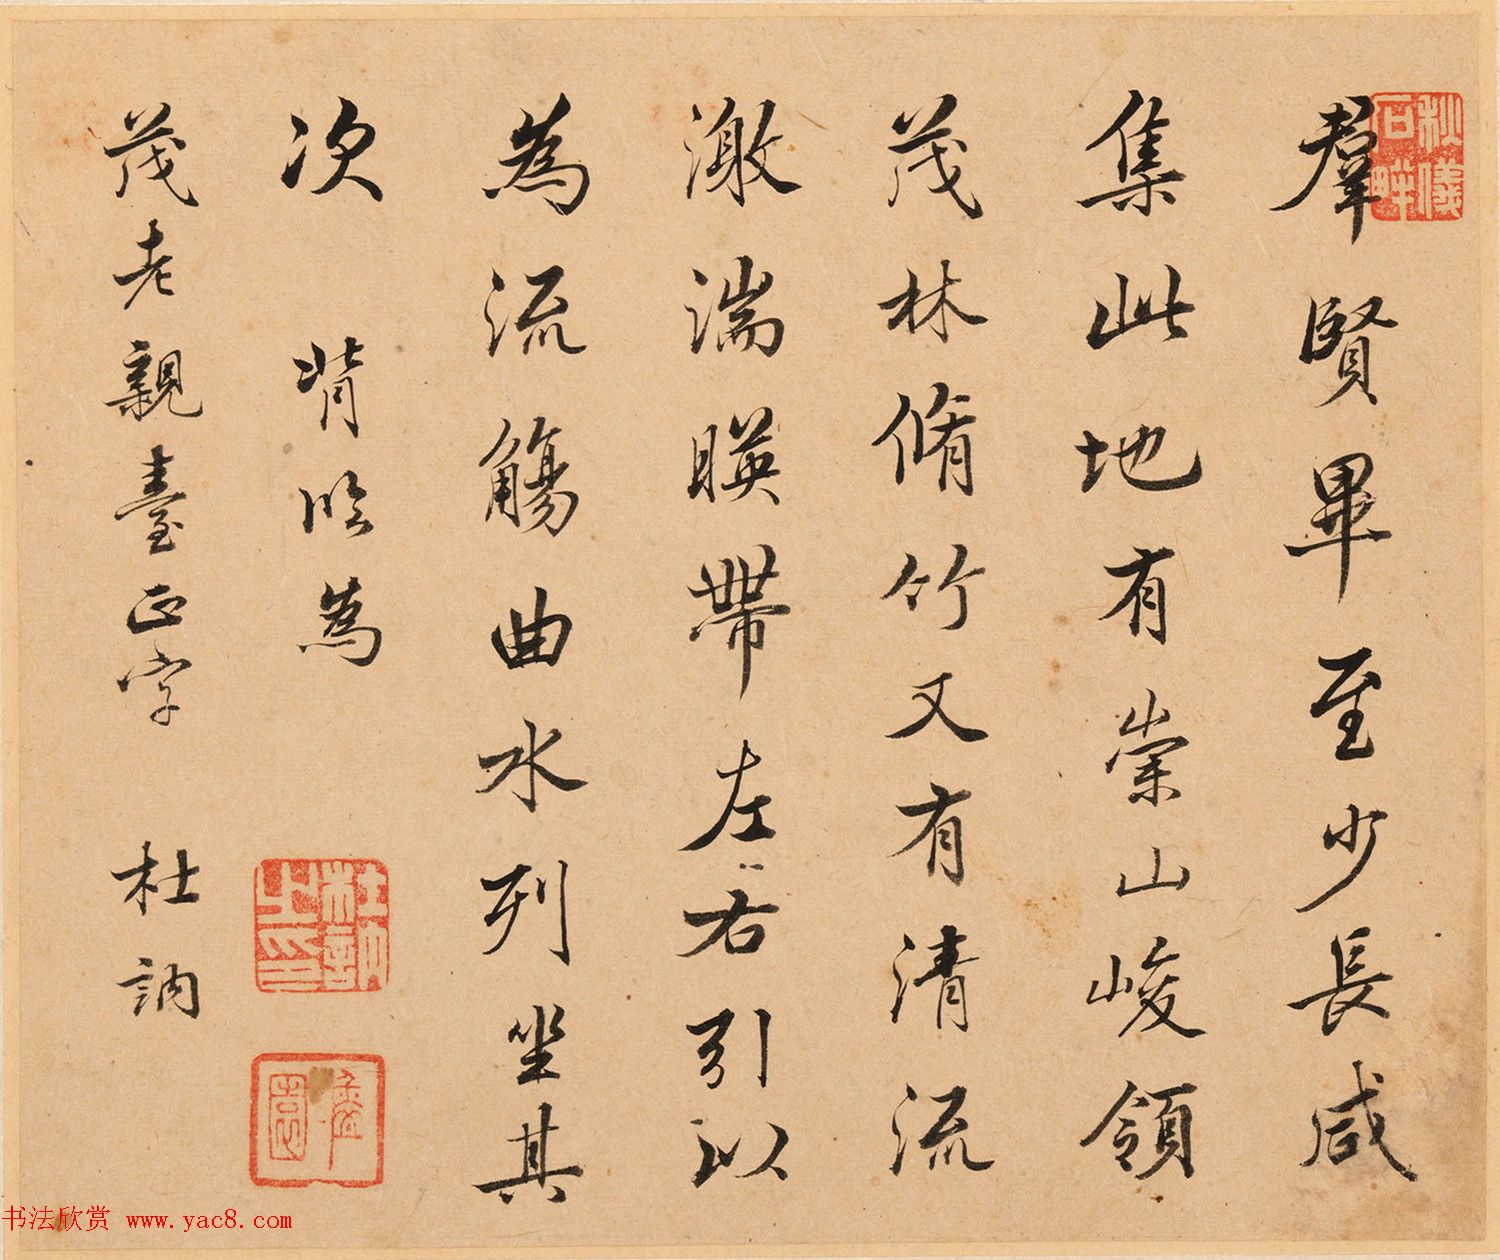 羣賢畢至少長咸
集此地有崇山峻領
茂林脩竹又有清流
激湍暎帶左右引以
為流觴曲水列坐其
次 背臨為
茂老親臺正字 杜訥
杜訥之印
书法欣赏 www.yac8.com